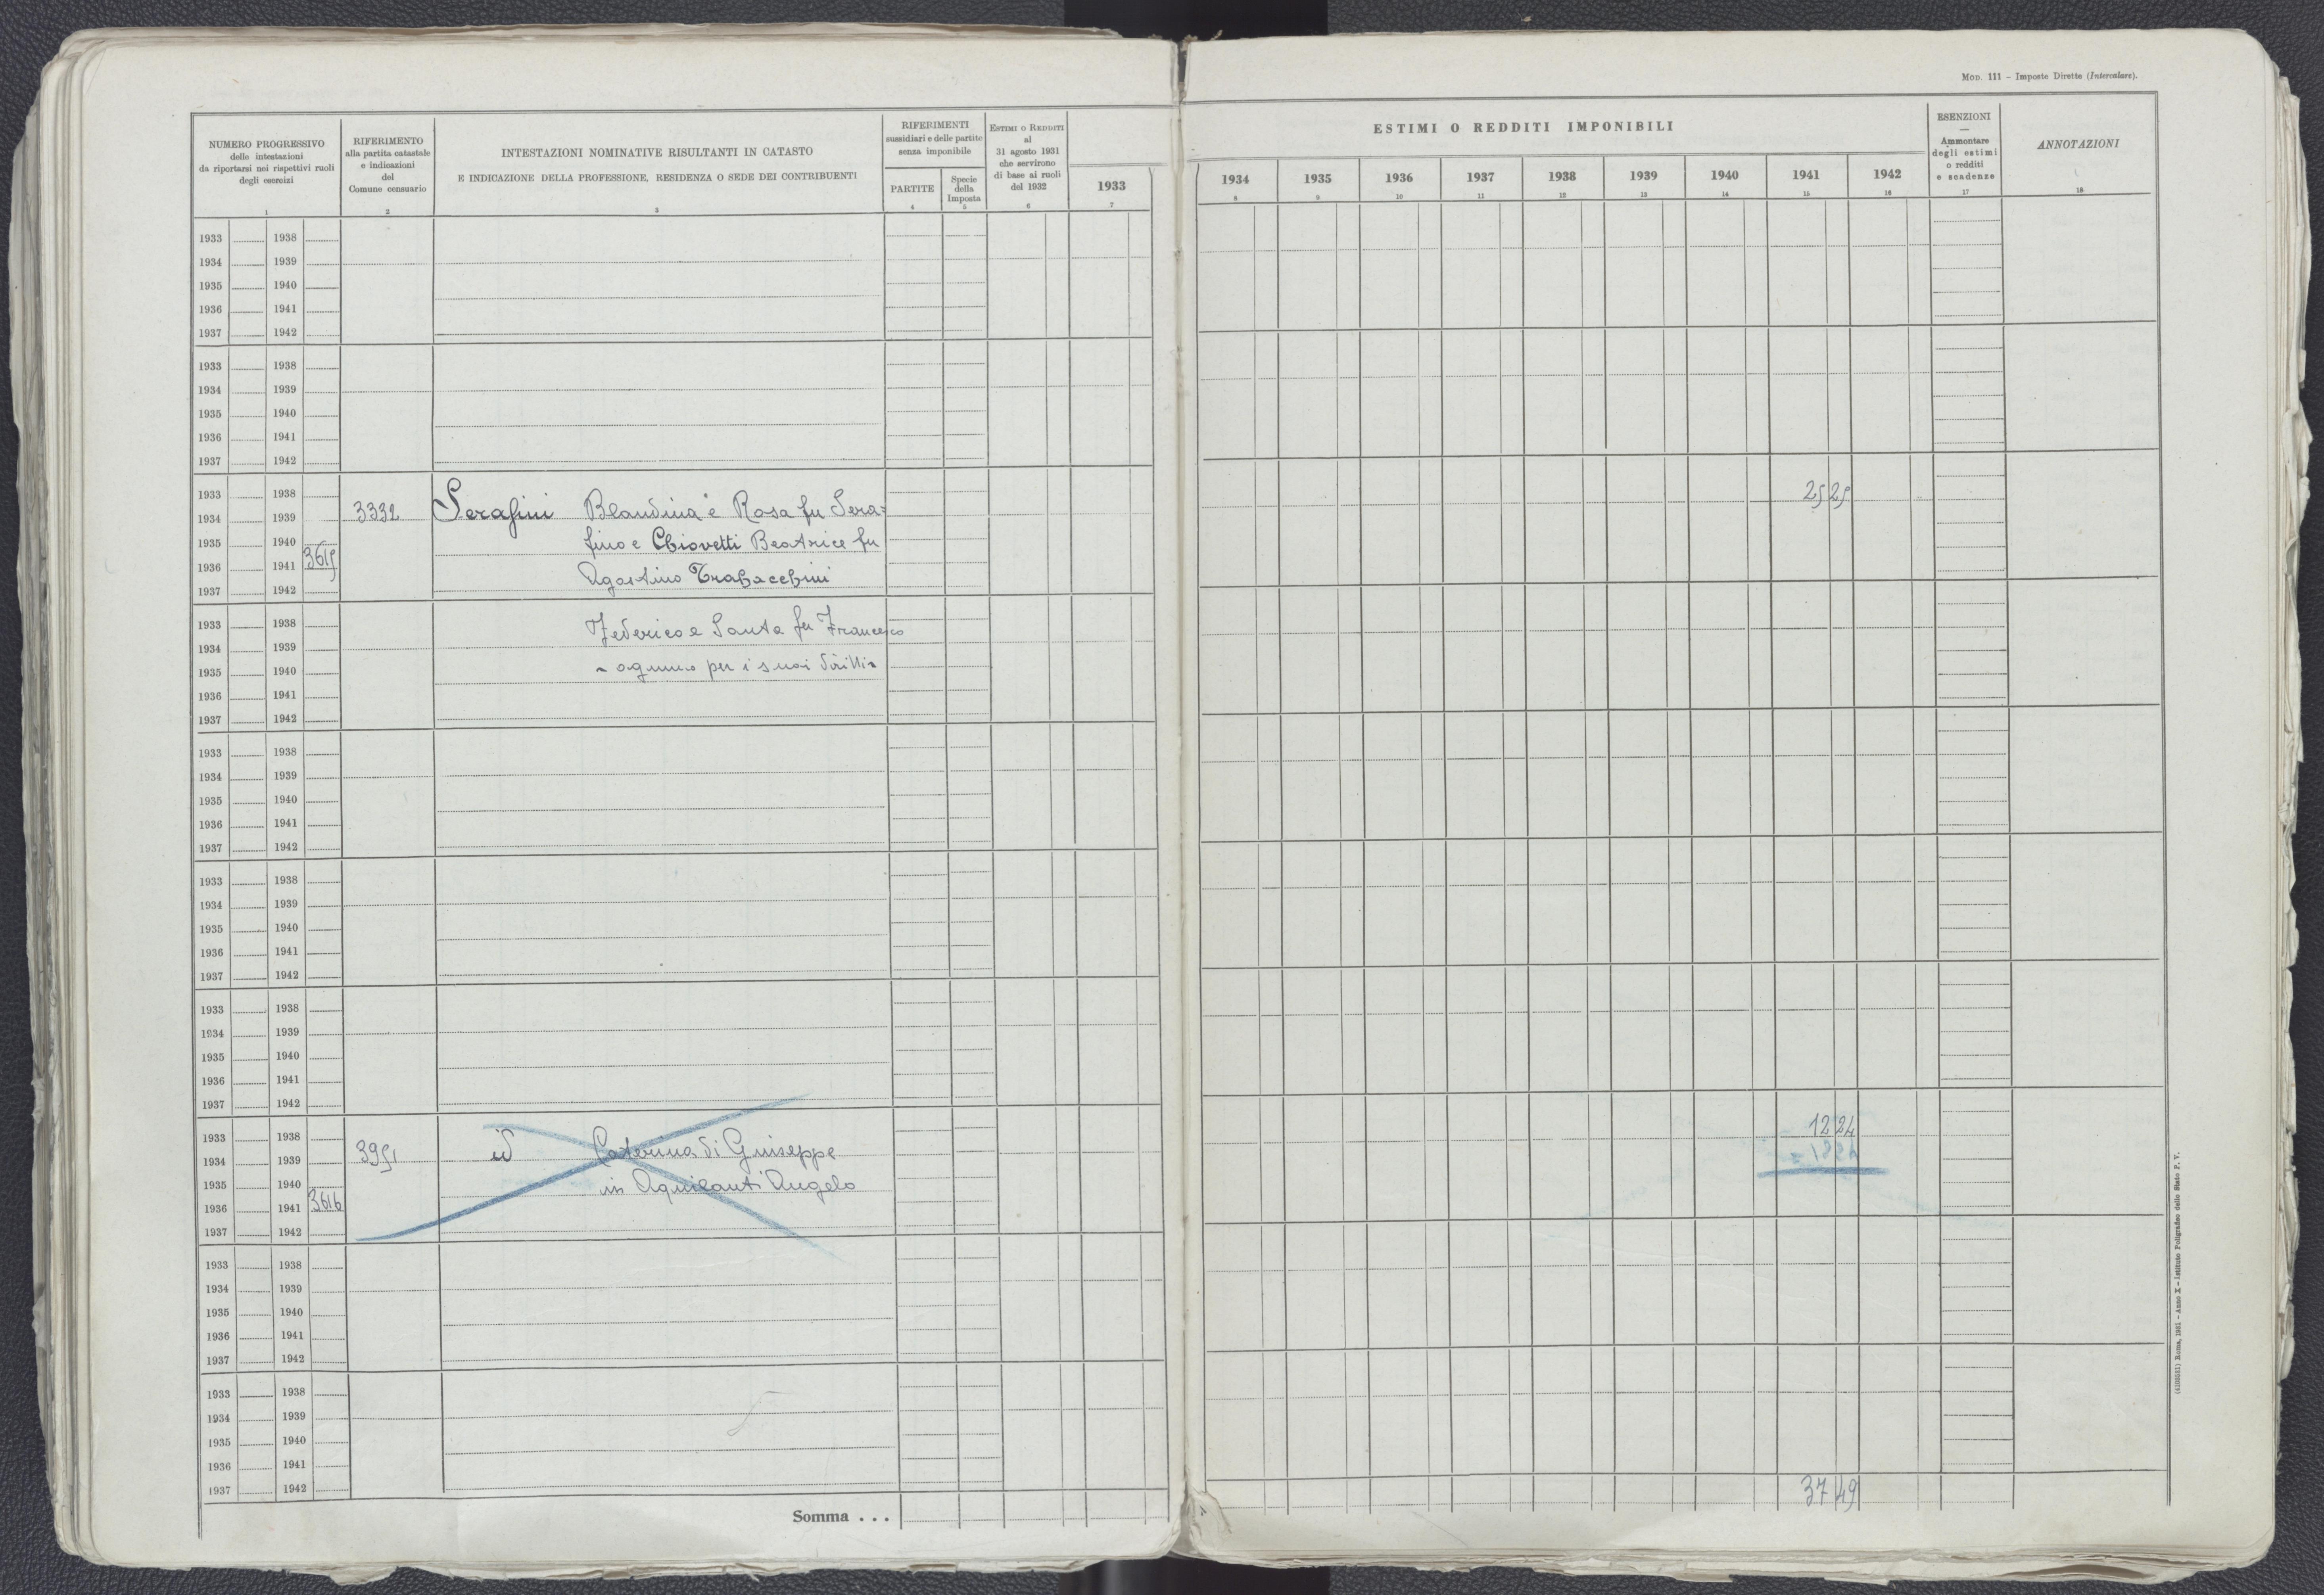 MOD. 111 – Imposte Dirette (Intercalare).
NUMERO PROGRESSIVO
delle intestazioni
da riportarsi nei rispettivi ruoli
degli esercizi
1
RIFERIMENTO
alla partita catastale
e indicazioni
del
Comune censuario
2
INTESTAZIONI NOMINATIVE RISULTANTI IN CATASTO
E INDICAZIONE DELLA PROFESSIONE, RESIDENZA O SEDE DEI CONTRIBUENTI
3
RIFERIMENTI
sussidiari e delle partite
senza imponibile
PARTITE
4
Specie
della
Imposta
5
ESTIMI O REDDITI
al
31 agosto 1931
che servirono
di base ai ruoli
del 1932
6
1933
7
ESTIMI O REDDITI IMPONIBILI
1934 1935 1936 1937 1938 1939 1940 1941 1942
8 9 10 11 12 13 14 15 16
ESENZIONI
—
Ammontare
degli estimi
o redditi
e scadenze
17
ANNOTAZIONI
18
1933 1938
1934 1939
1935 1940
1936 1941
1937 1942
1933 1938
1934 1939
1935 1940
1936 1941
1937 1942
1933 1938 25 25
1934 1939 3332 Serafini Blandina e Rosa fu Sera=
1935 1940 fino e Chiovetti Beatrice fu
1936 1941 3615 Agostino Trabacchini
1937 1942
1933 1938 Federico e Santa fu Francesco
1934 1939
1935 1940 - ognuno per i suoi diritti-
1936 1941
1937 1942
1933 1938
1934 1939
1935 1940
1936 1941
1937 1942
1933 1938
1934 1939
1935 1940
1936 1941
1937 1942
1933 1938
1934 1939
1935 1940
1936 1941
1937 1942
1933 1938 12 24
1934 1939 3951 id Caterina di Giuseppe
1935 1940 in Aquilanti Angelo
1936 1941 3616
1937 1942
1933 1938
1934 1939
1935 1940
1936 1941
1937 1942
1933 1938
1934 1939
1935 1940
1936 1941
1937 1942
37 49
Somma . . .
(4100551) Roma, 1931 – Anno X – Istituto Poligrafico dello Stato P. V.